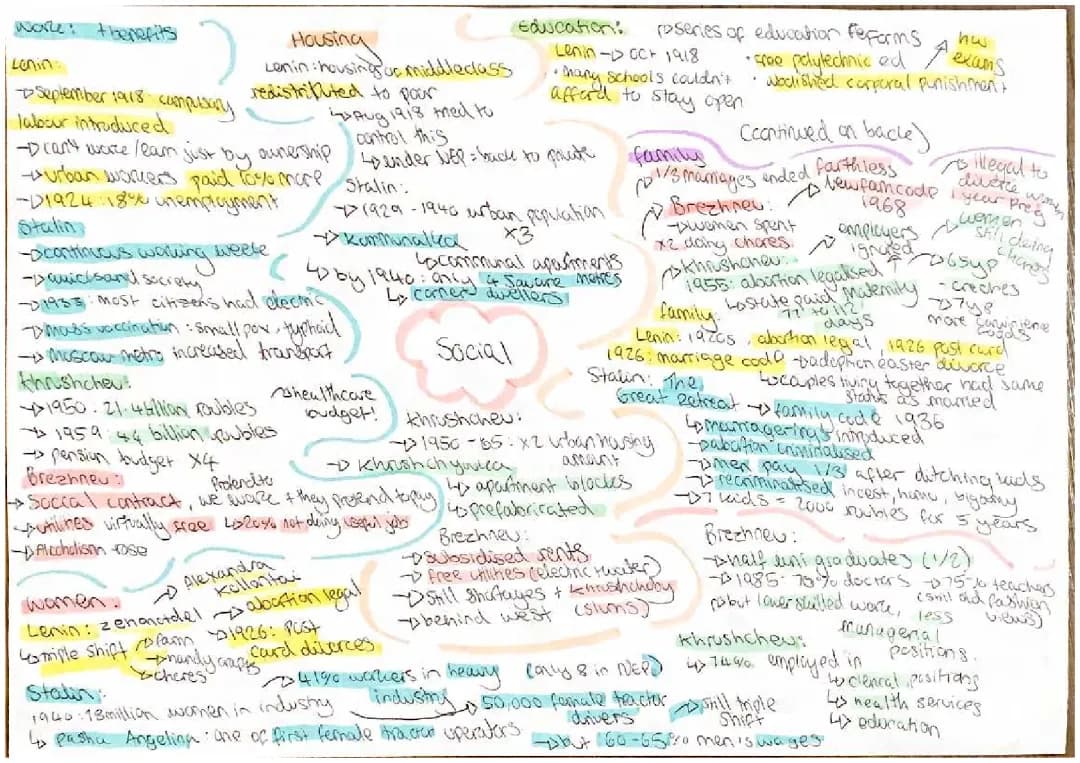 Work: + benefits
Lenin:
→ September 1918: compulsory
labour introduced
→ can't work/earn just by ownership
→ urban workers paid 10% more
→ 1924: 18% unemployment
Stalin
→ continuous working week
→ quicksand society
→ 1933: most citizens had electric
→ mass vaccination: smallpox, typhoid
→ Moscow metro increased transport
Khrushchev:
→ healthcare
budget!
→ 1950: 21.4 billion roubles
→ 1959: 44 billion roubles
→ pension budget x4
Brezhnev:
Pretend to
→ Social contract, we work + they pretend to pay
→ utilities virtually free ↳ 20% not doing useful job
→ Alcoholism rose
Housing
Lenin: housing of middleclass
redistributed to poor
↳ Aug 1918 tried to
control this
↳ under NEP = back to private
Stalin:
→ 1929 - 1940 urban population
x3
→ Kommunalka
↳ communal apartments
↳ by 1940: only 4 square metres
↳ corner dwellers
Social
Khrushchev:
→ 1950 - 65: x2 urban housing
amount
→ Khrushchyovka
↳ apartment blocks
↳ prefabricated
Brezhnev:
→ subsidised rents
→ free utilities (electric + water)
→ still shortages + khrushchoby
(slums)
→ behind west
Education: → series of education reforms
Lenin → Oct 1918 • free polytechnic ed
↗ hw
exams
• many schools couldn't
afford to stay open
• abolished corporal punishment
(continued on back)
family
→ 1/3 marriages ended farthless
→ illegal to
divorce women
1 year preg
Brezhnev:
→ New fam code
1968
→ women spent
x2 doing chores
→ employers
ignored
→ women
still doing
chores
Khrushchev:
→ 1955: abortion legalised
→ 65 yp
creches
↳ state paid maternity
77 to 112
days
→ 7yp
more convenience
goods
Family:
Lenin: 1920s, abortion legal, 1926 post card
1926: marriage code → adoption easter divorce
↳ couples living together had same
status as married
Stalin: The
Great Retreat → family code 1936
↳ marriage rings introduced
→ abortion criminalised
→ men pay 1/3 after ditching kids
→ recriminalised incest, homo, bigamy
→ 7 kids = 2000 roubles for 5 years
Women:
→ Alexandra
Kollontai
Lenin: zenotdel → abortion legal
↳ triple shift → farm
→ handycrafts
→ chores
→ 1926: Post
card divorces
Stalin:
→ 41% workers in heavy
industry
(only 8 in NEP)
1940: 13 million women in industry
→ 50,000 female tractor
drivers
→ still triple
shift
↳ Pasha Angelina: one of first female tractor operators
→ but 60-65% men's wages
Brezhnev:
→ half uni graduates (1/2)
→ 1985: 70% doctors → 75% teachers
(still old fashion
views)
→ but lower skilled work, less
managerial
positions.
Khrushchev:
↳ 74% employed in
↳ clerical positions
↳ health services
↳ education